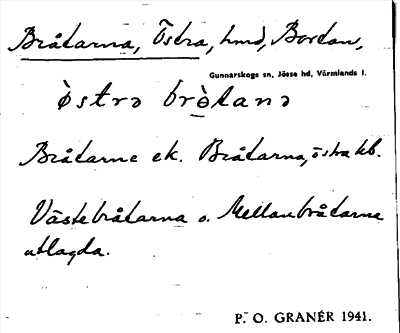 Bråtarna, Östra, hmd, Bortan,
Gunnarskogs sn, Jösse hd, Värmlands l.
östrə brò̱tanə
Bråtarne ek. Bråtarna, östra kb.
Västebråtarna o. Mellanbråtarna
utlagda.
P. O. GRANÉR 1941.